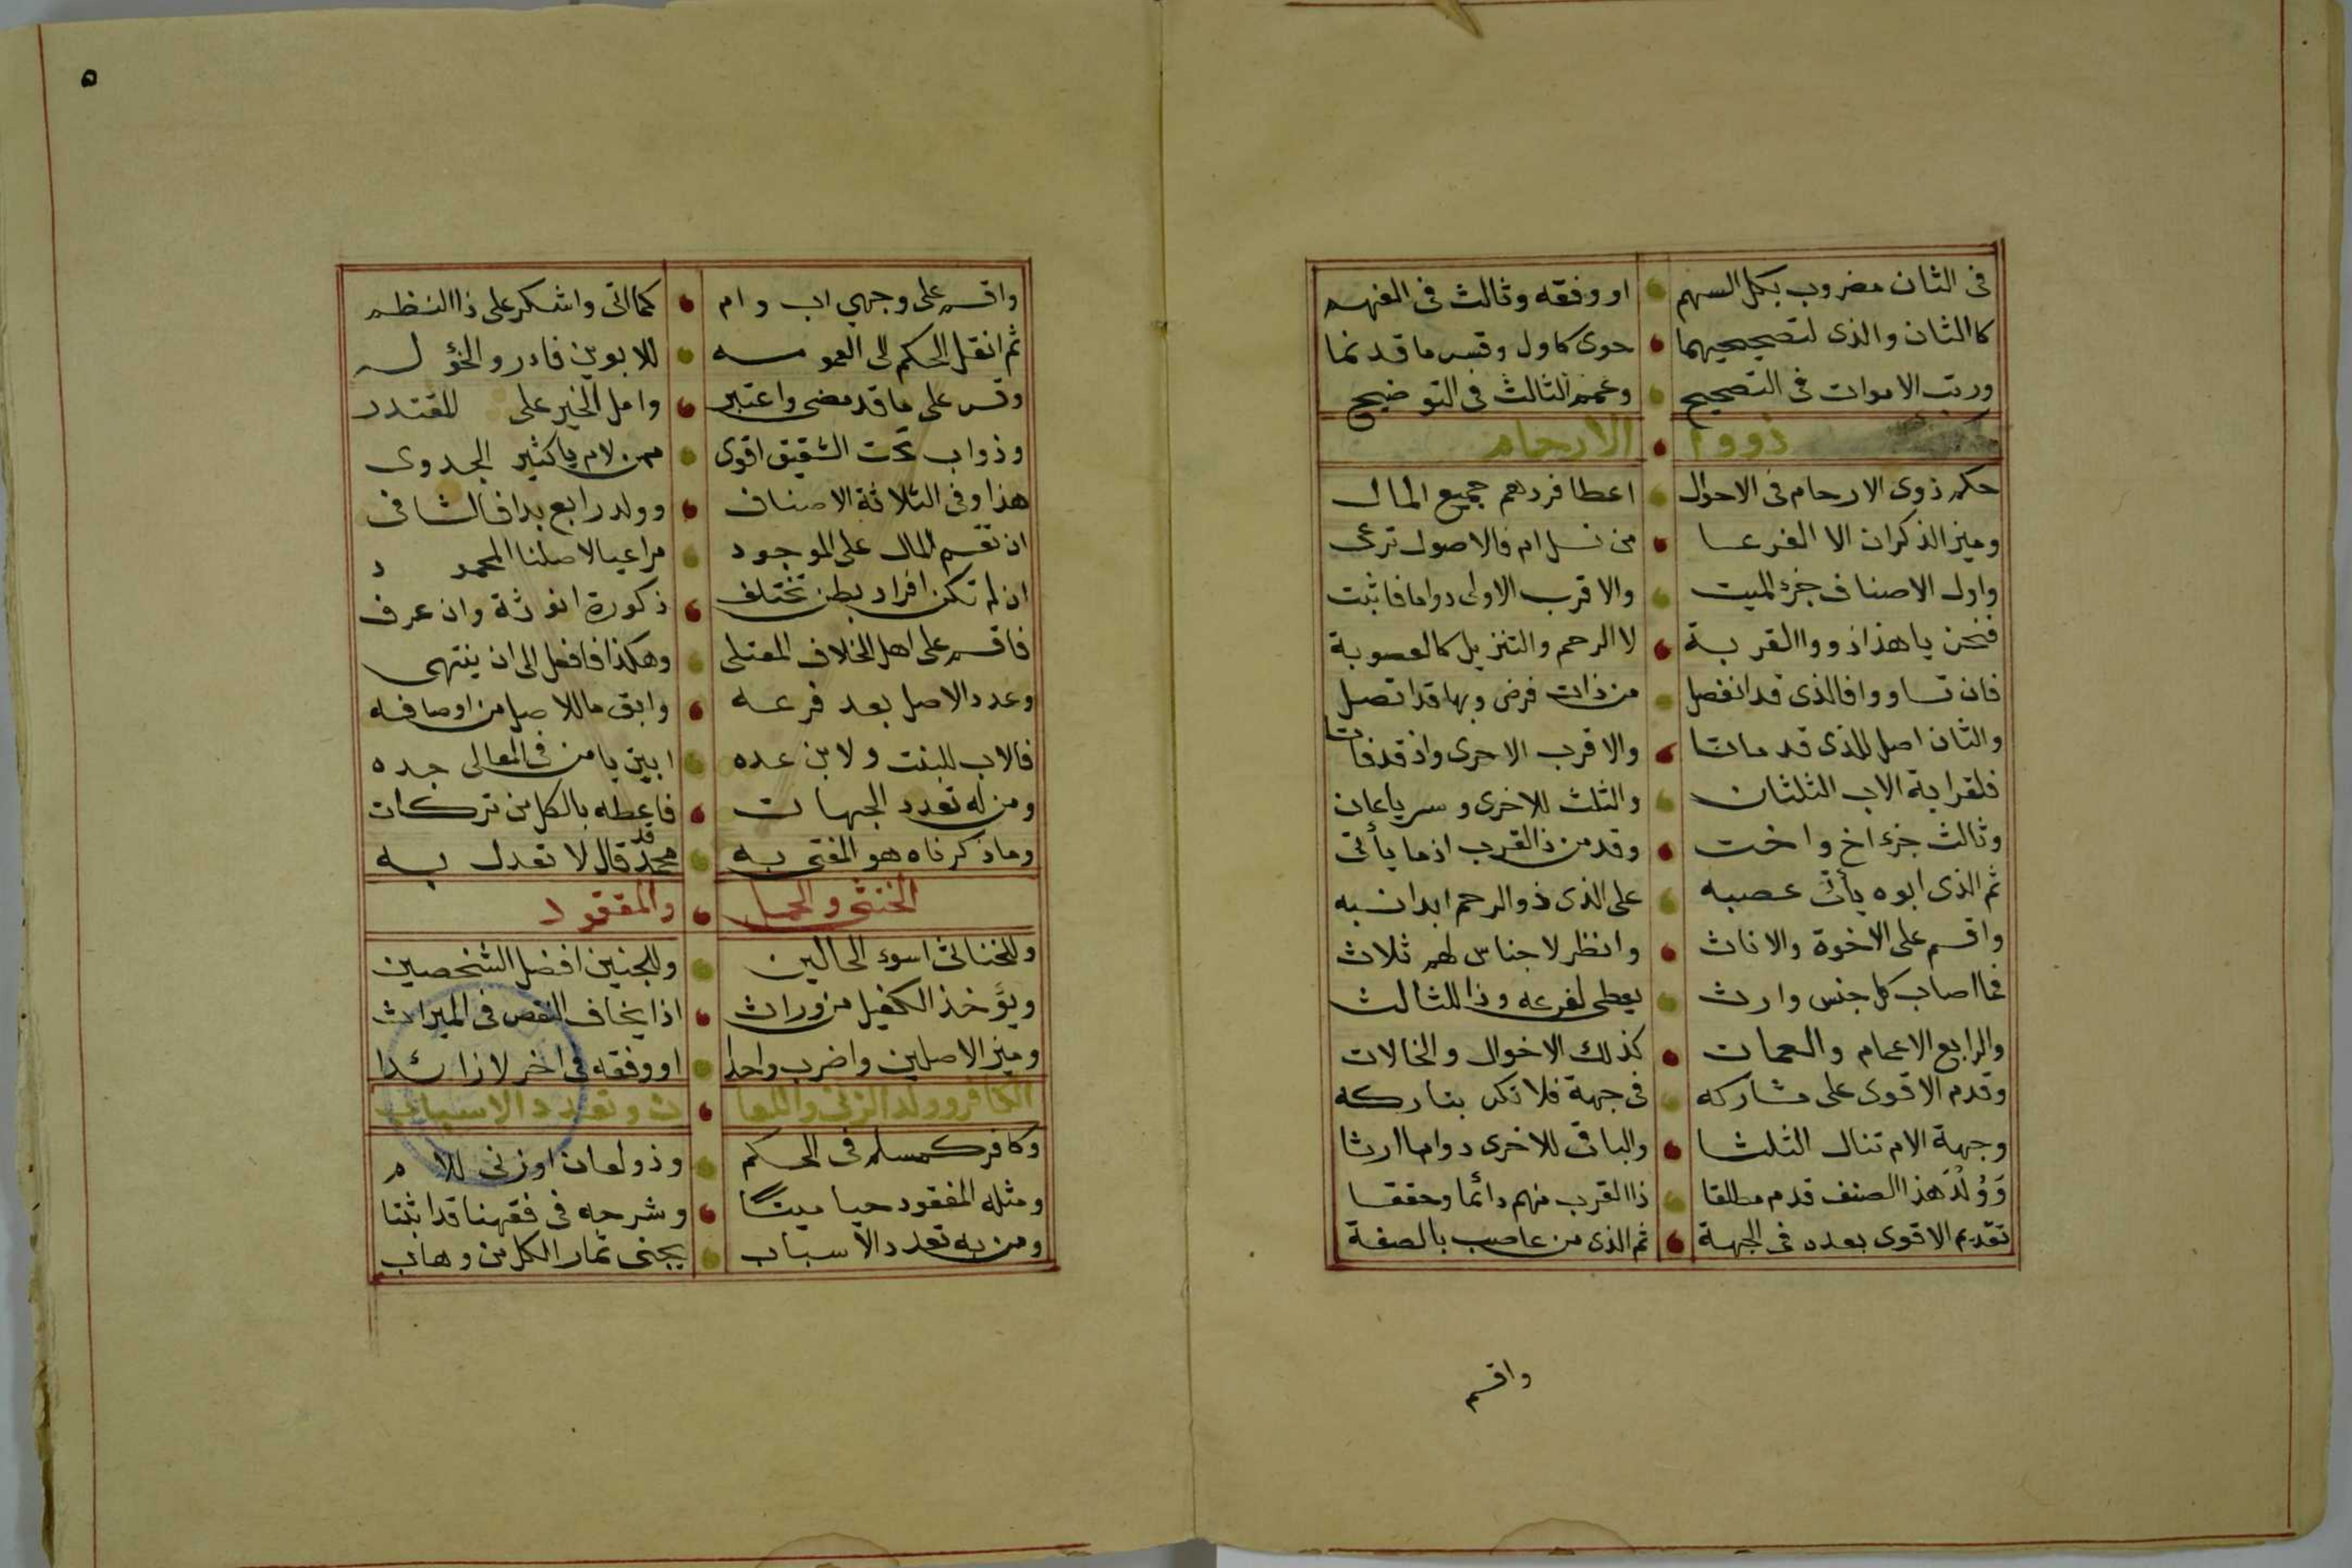 فى الثان مضروب بكل السهم او وفقه وثالث فى الفهم
كالثان والذى لتصحيحهما حوى كاول وقس ما قد نما
ورتب الاموات فى التصحيح وعمم الثالث فى التوضيح
ذووا الارحام
حكم ذوى الارحام فى الاحوال اعطا فردهم جميع المال
وميز الذكران الا الفرعا من نسل ام فالاصول ترعى
واول الاصناف جزء الميت والاقرب الاولى دواما فاثبت
فنحن يا هذا ذووا القربة لا الرحم والتنزيل كالعصوبة
فان تساووا فالذى قد انفصل من ذات فرض وبها قد اتصل
والثان اصل للذى قد ماتا والاقرب الاحرى واذ قد فاتا
فلقرابة الاب الثلثان والثلث للاخرى وسر ياعان
وثالث جزء اخ واخت وقدمن ذالقرب اذما يأتى
ثم الذى ابوه يأتى عصبه على الذى ذو الرحم ابدا نسبه
واقسم على الاخوة والاناث وانظر لاجناس لهم ثلاث
فما اصاب كل جنس وارث يعطى لفرعه وذا للثالث
والرابع الاعمام والعمات كذلك الاخوال والخالات
وقدم الاقوى على مشاركه فى جهة فلا تكن بتاركه
وجهة الام تنال الثلثا والباقى للاخرى دواما ارثا
وَوُلْدَ هذا الصنف قدم مطلقا ذا القرب منهم دائما وحققا
تقديم الاقوى بعده فى الجهة ثم الذى من عاصب بالصفة
واقسم
٥
واقسم على وجهي اب وام كما اتى واشكر على ذا النظم
ثم انقل الحكم الى العمومه للابوين فادر والخؤله
وقس على ما قد مضى واعتبر وامل الخير على المقتدر
وذو اب تحت الشقيق اقوى ممن لام يا كثير الجدوى
هذا وفى الثلاثة الاصناف وولد رابع بدا فالشافى
ان تقسم المال على الموجود مراعيا لاصلنا المحمود
ان لم تكن افراد بطن تختلف ذكورة انوثة وان عرف
فاقسم على اهل الخلاف المعتلى وهكذا فافعل الى ان ينتهى
وعدد الاصل بعد فرعه وابق ما للاصل من اوصافه
فالاب للبنت ولابن عده ابين يا من فى المعالى جده
ومن له تعدد الجهات فاعطه بالكل من تركات
وما ذكرناه هو المفتى به محمد قد قال لا تعدل به
الخنثى والحمل والمفقود
وللخناثى اسوء الحالين وللجنين افضل الشخصين
ويؤخذ الكفيل من وراث اذا يخاف النقص فى الميراث
وميز الاصلين واضرب واحدا او وفقه فى اخر لا زائدا
الكافر وولد الزنى واللعان وتعدد الاسباب
وكافر كمسلم فى الحكم وذو لعان او زنى للام
ومثله المفقود حيا ميتا وشرحه فى فقهنا قد اثبتا
ومن به تعدد الاسباب يجنى ثمار الكل من وهاب